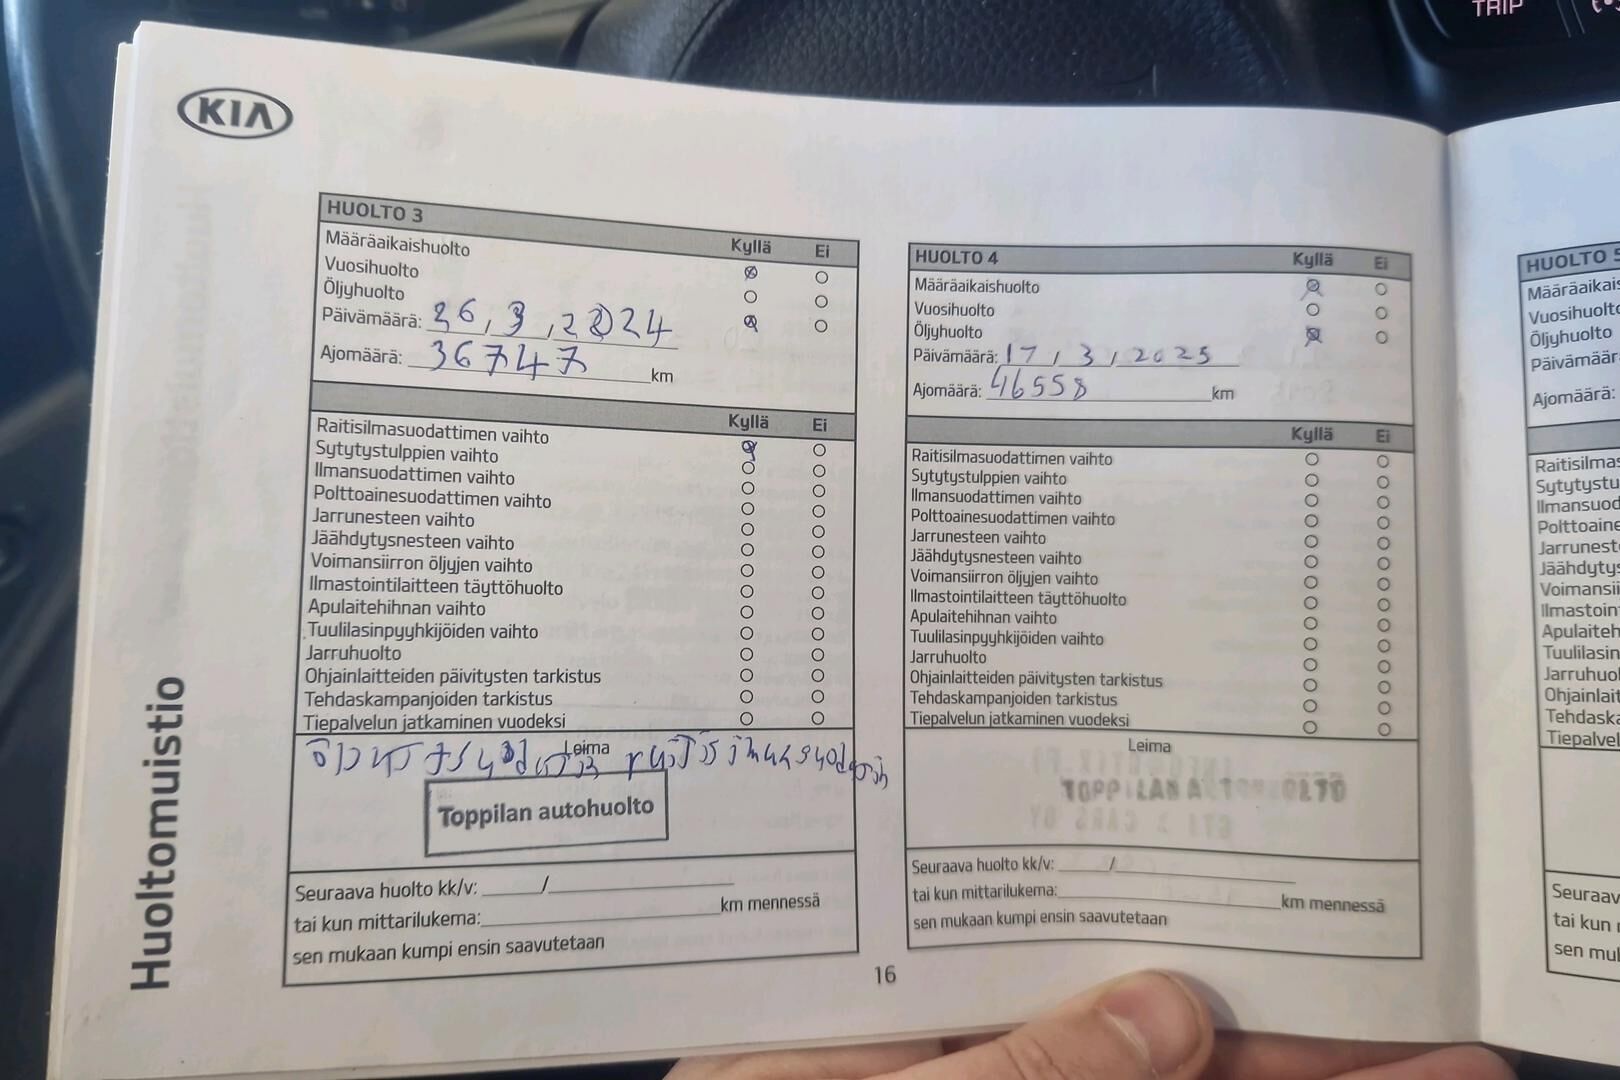 TRIP
KIA
Huoltomuistio
HUOLTO 3
Kyllä Ei
Määräaikaishuolto
Vuosihuolto
Öljyhuolto
Päivämäärä: 26, 3, 2024
Ajomäärä: 36747 km
Kyllä Ei
Raitisilmasuodattimen vaihto
Sytytystulppien vaihto
Ilmansuodattimen vaihto
Polttoainesuodattimen vaihto
Jarrunesteen vaihto
Jäähdytysnesteen vaihto
Voimansiirron öljyjen vaihto
Ilmastointilaitteen täyttöhuolto
Apulaitehihnan vaihto
Tuulilasinpyyhkijöiden vaihto
Jarruhuolto
Ohjainlaitteiden päivitysten tarkistus
Tehdaskampanjoiden tarkistus
Tiepalvelun jatkaminen vuodeksi
Leima
Toppilan autohuolto
Seuraava huolto kk/v: /
tai kun mittarilukema: km mennessä
sen mukaan kumpi ensin saavutetaan
HUOLTO 4
Kyllä Ei
Määräaikaishuolto
Vuosihuolto
Öljyhuolto
Päivämäärä: 17 / 3 / 2025
Ajomäärä: 46558 km
Kyllä Ei
Raitisilmasuodattimen vaihto
Sytytystulppien vaihto
Ilmansuodattimen vaihto
Polttoainesuodattimen vaihto
Jarrunesteen vaihto
Jäähdytysnesteen vaihto
Voimansiirron öljyjen vaihto
Ilmastointilaitteen täyttöhuolto
Apulaitehihnan vaihto
Tuulilasinpyyhkijöiden vaihto
Jarruhuolto
Ohjainlaitteiden päivitysten tarkistus
Tehdaskampanjoiden tarkistus
Tiepalvelun jatkaminen vuodeksi
Leima
TOPPILAN AUTOHUOLTO
Seuraava huolto kk/v: /
tai kun mittarilukema: km mennessä
sen mukaan kumpi ensin saavutetaan
16
HUOLTO 5
Määräaikais
Vuosihuolto
Öljyhuolto
Päivämäär
Ajomäärä:
Raitisilmas
Sytytystu
Ilmansuod
Polttoaine
Jarrunest
Jäähdytys
Voimansii
Ilmastoin
Apulaiteh
Tuulilasin
Jarruhuol
Ohjainlait
Tehdaska
Tiepalvel
Seuraav
tai kun
sen muk